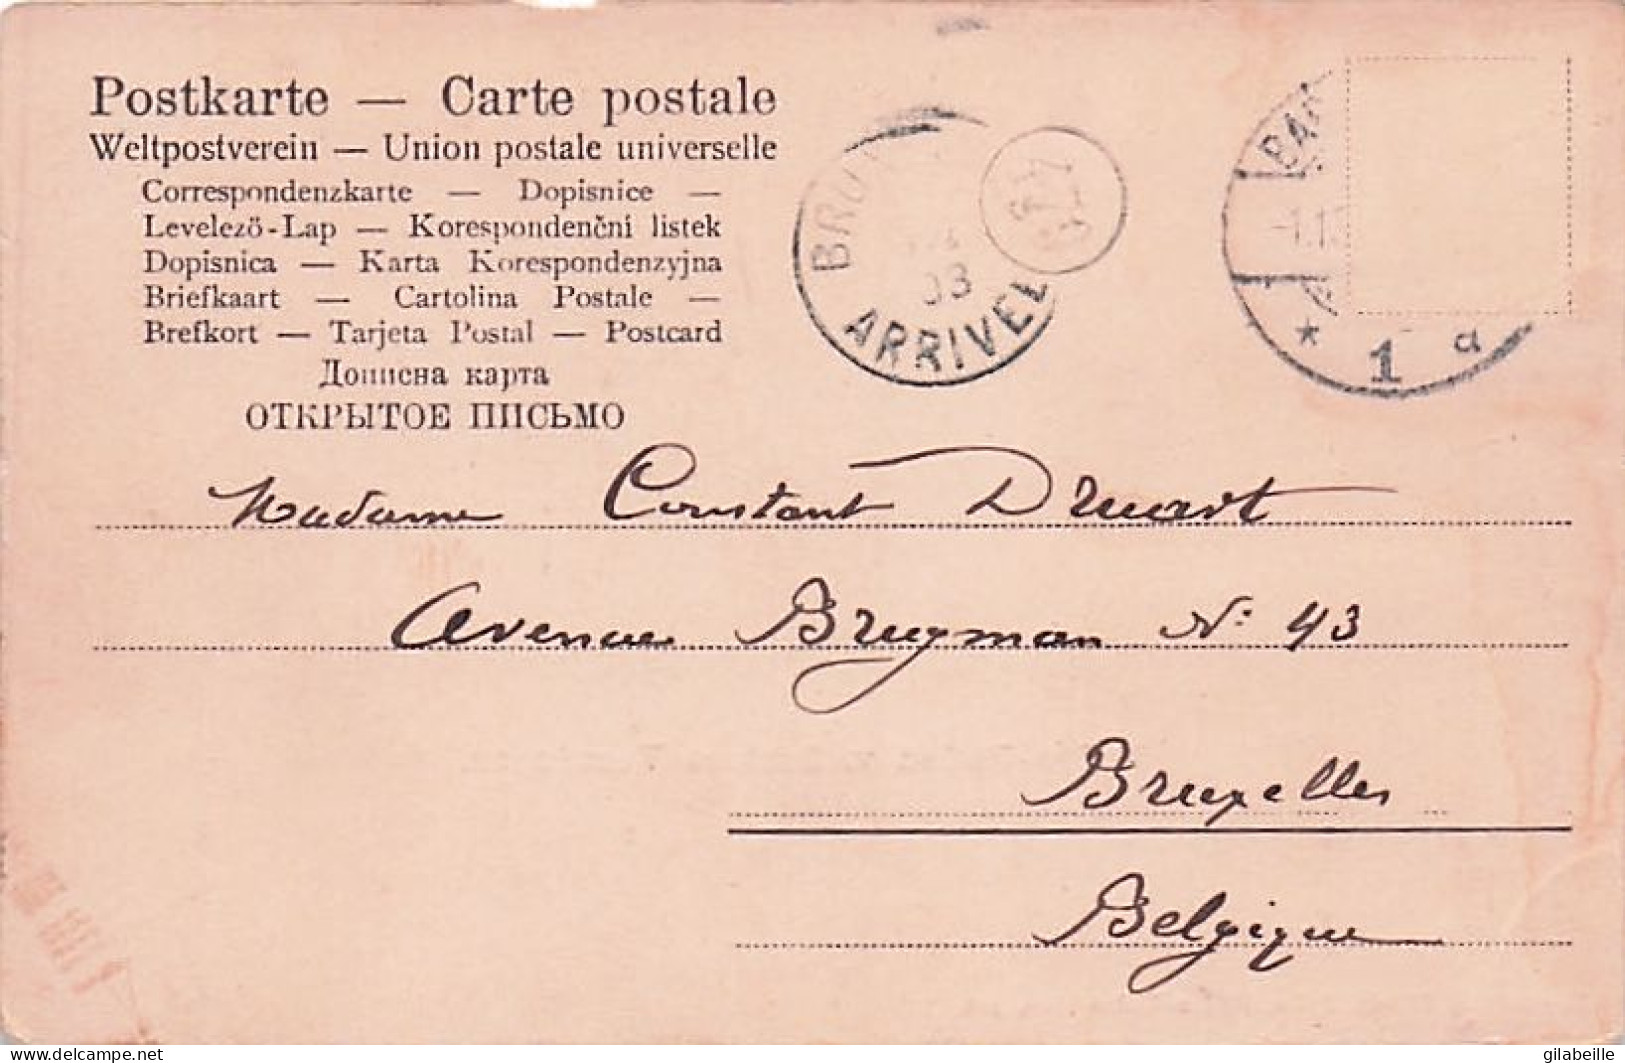 Postkarte — Carte postale
Weltpostverein — Union postale universelle
Correspondenzkarte — Dopisnice —
Levelező-Lap — Korespondenční listek
Dopisnica — Karta Korespondenzyjna
Briefkaart — Cartolina Postale —
Brefkort — Tarjeta Postal — Postcard
Дописна карта
ОТКРЫТОЕ ПИСЬМО
03
ARRIVEE
* 1 a
Madame Constant Druart
Avenue Brugman N: 43
Bruxelles
Belgique
delcampe.net
gilabeille